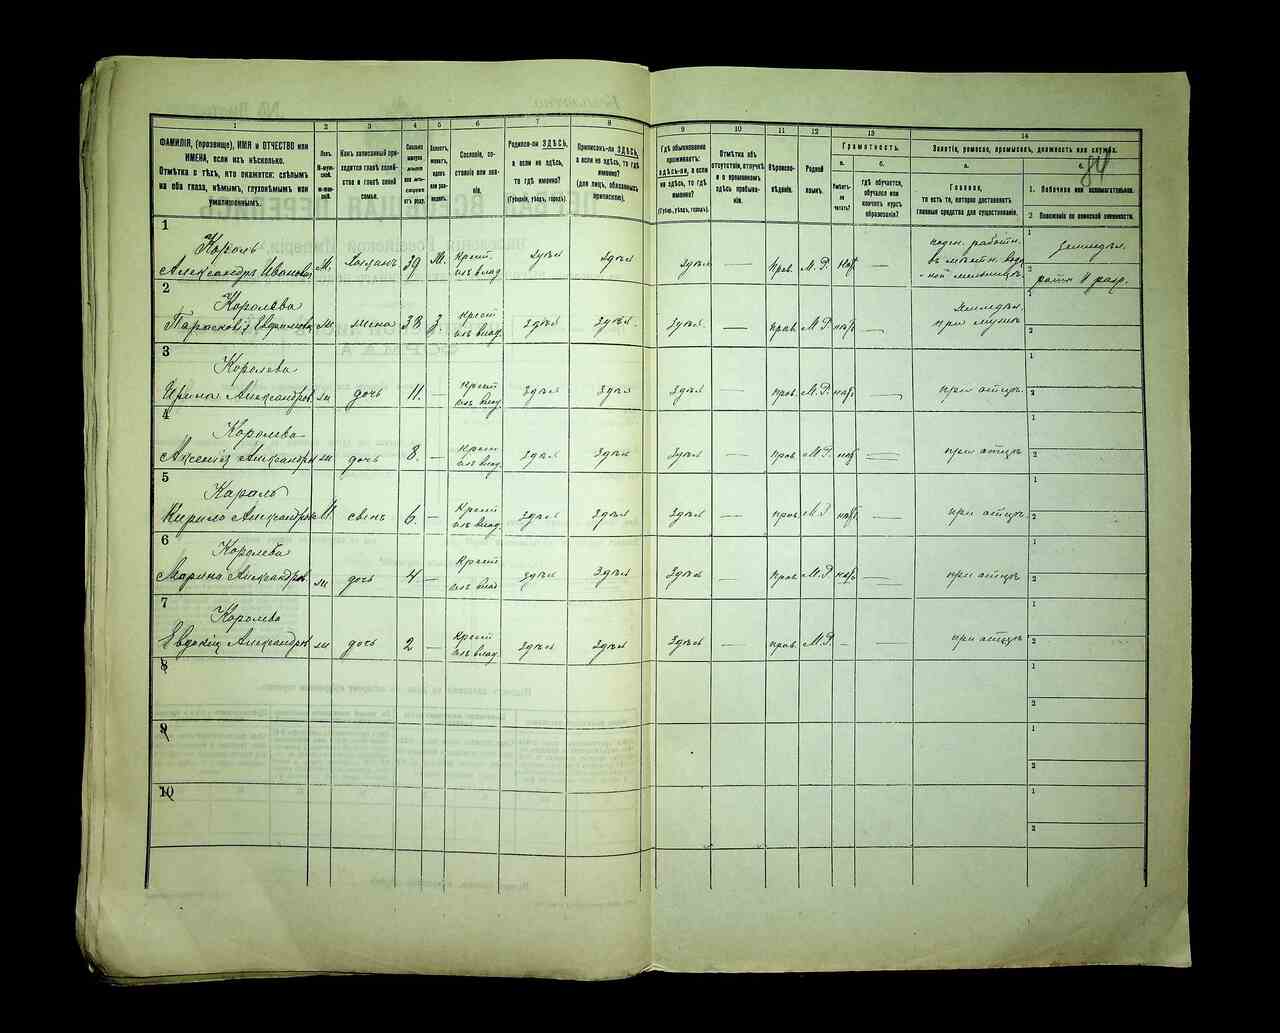 84
1 2 3 4 5 6 7 8 9 10 11 12 13 14
ФАМИЛІЯ, (прозвище), ИМЯ и ОТЧЕСТВО или
ИМЕНА, если ихъ нѣсколько.
Отмѣтка о тѣхъ, кто окажется: слѣпымъ
на оба глаза, нѣмымъ, глухонѣмымъ или
умалишеннымъ.
Полъ.
Какъ записанный при-
ходится главѣ хозяй-
ства и главѣ своей
семьи.
Сословіе, со-
стояніе или зва-
ніе.
Родился-ли ЗДѢСЬ,
а если не здѣсь,
то гдѣ именно?
(Губернія, уѣздъ, городъ).
Приписанъ-ли ЗДѢСЬ,
а если не здѣсь, то гдѣ
именно?
(для лицъ, обязанныхъ
припискою).
Гдѣ обыкновенно
проживаетъ:
здѣсь-ли, а если
не здѣсь, то гдѣ
именно?
(Губер., уѣздъ, городъ).
Отмѣтка объ
отсутствіи, отлучкѣ
и о временномъ
здѣсь пребыва-
ніи.
Вѣроиспо-
вѣданіе.
Родной
языкъ.
Грамотность.
а.
Умѣетъ-
ли
читать?
б.
гдѣ обучается,
обучался или
кончилъ курсъ
образованія?
Занятіе, ремесло, промыселъ, должность или служба.
а.
Главное,
то есть то, которое доставляетъ
главныя средства для существованія.
1. Побочное или вспомогательное.
2 Положеніе по воинской повинности.
1
Король
Александръ Ивановъ М. Хозяинъ 39 М. Крест. изъ влад здѣсь здѣсь здѣсь — Прав. М.Р. нѣт —
поден. работн.
земледѣл.
ратн II разр.
2
Королева
Парасковія жена 38 З. Крест изъ влад здѣсь здѣсь. здѣсь. — прав. М.Р. нѣт —
Земледѣл.
при мужѣ
3
Королева
Ирина Александров. ж дочь 11. — Крест изъ влад здѣсь здѣсь здѣсь — прав. М.Р. нѣт —
при отцѣ
4
Королева
Аксенія Александров ж дочь 8. — Крест изъ влад здѣсь здѣсь здѣсь — прав М.Р. нѣт
при отцѣ
5
Кароль
Кирило Александров М. сынъ 6. — Крест изъ влад. здѣсь здѣсь здѣсь — прав М.Р. нѣт.
при отцѣ
6
Королева
Марина Александров. ж дочь 4 — Крест изъ влад здѣсь здѣсь здѣсь — прав. М.Р. нѣт —
при отцѣ
7
Королева
Евдокія Александров ж дочь 2 — Крест изъ влад. здѣсь здѣсь здѣсь — прав. М.Р. — —
при отцѣ
8
9
10